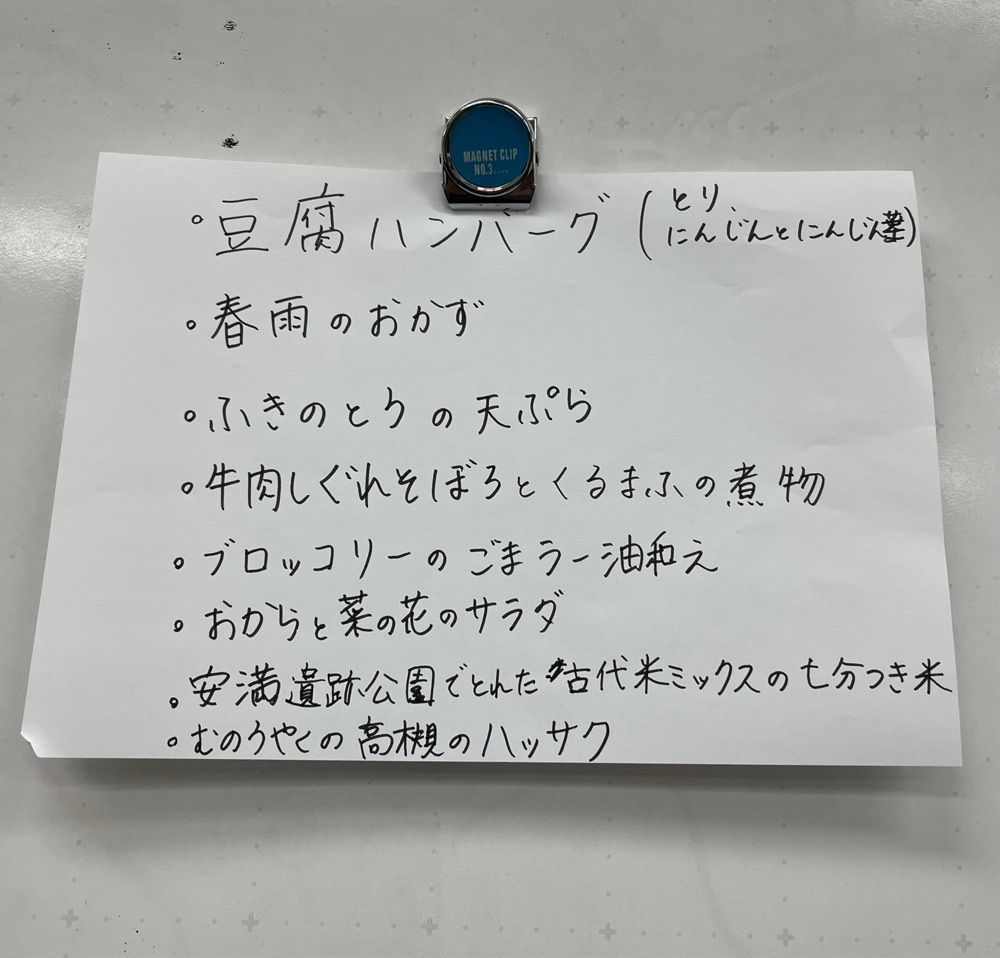 MAGNET CLIP
NO.3
。豆腐ハンバーグ(とり、
にんじんとにんじん葉)
。春雨のおかず
。ふきのとうの天ぷら
。牛肉しぐれそぼろとくるまふの煮物
。ブロッコリーのごまラー油和え
。おからと菜の花のサラダ
。安満遺跡公園でとれた古代米ミックスの七分つき米
。むのうやくの高槻のハッサク